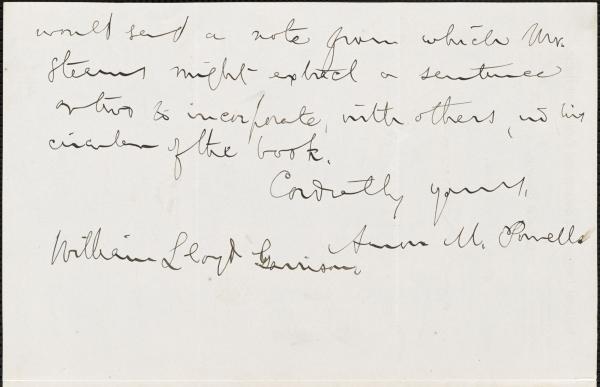 would send a note from which Mr.
Stearns might extract a sentence
or two to incorporate, with others, in his
circular of the book.
Cordially yours,
Aaron M. Powell.
William Lloyd Garrison,